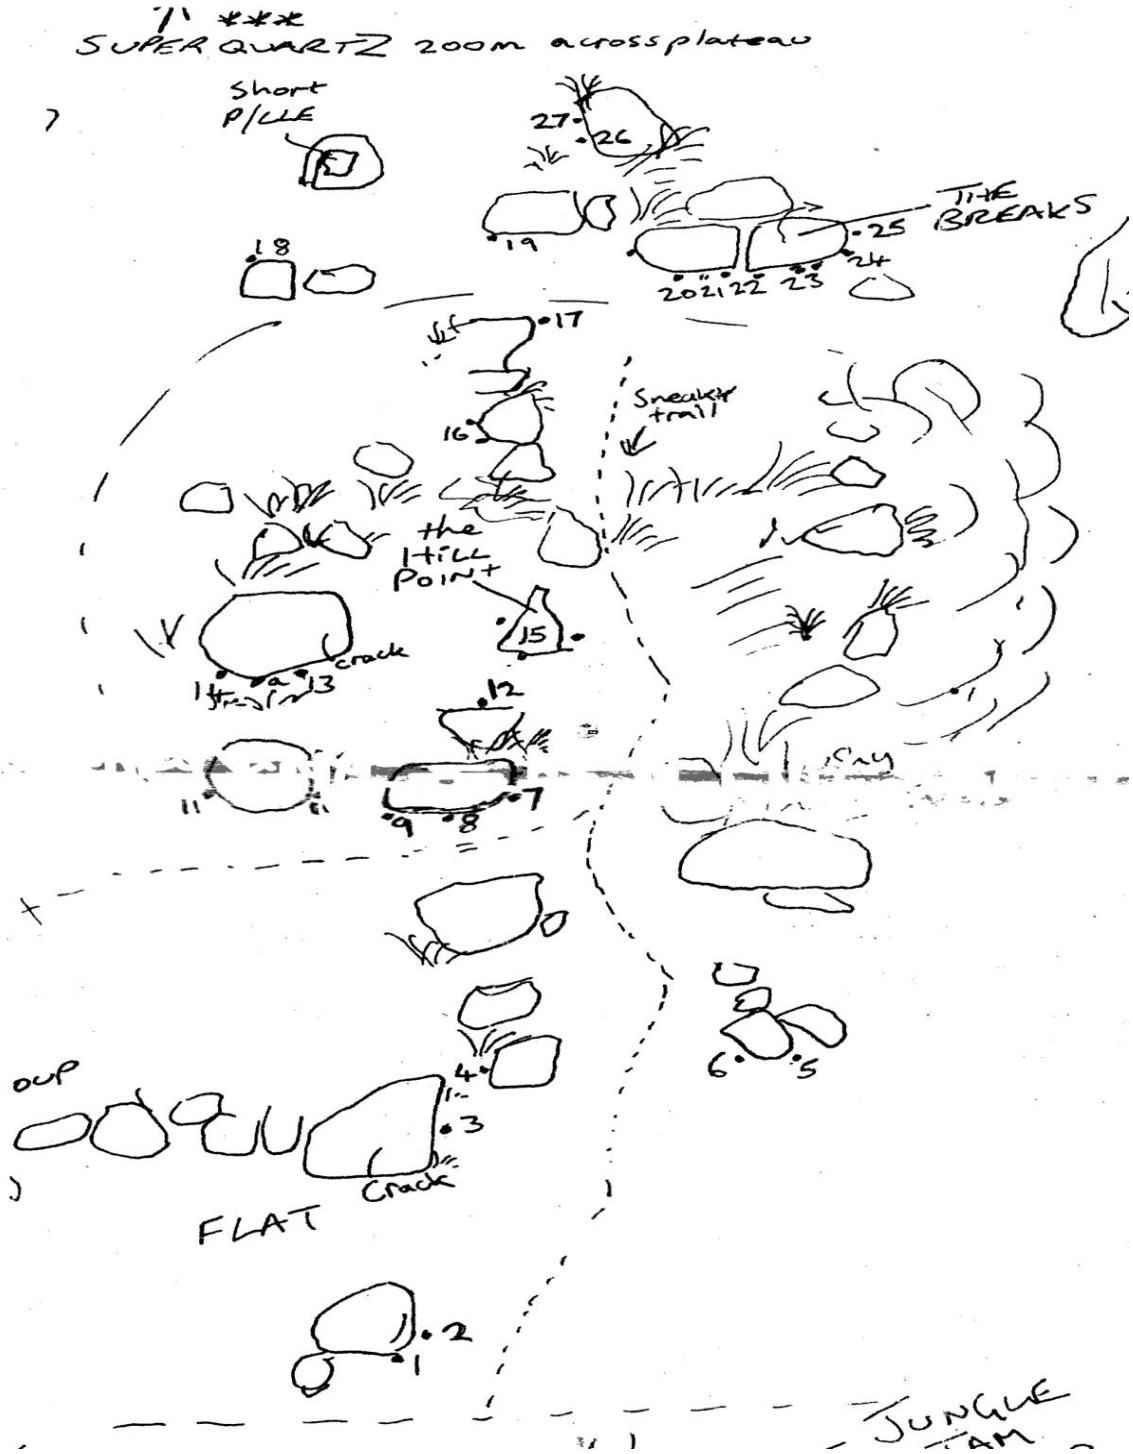 71 ***
SUPER QUARTZ 200m across plateau
Short
P/LLE
27
26
THE
BREAKS
19
25
18
24
20 21 22 23
17
Sneaky
trail
16
the
HILL
POINT
15
crack
13
12
11
11
7
9
8
6
5
oup
4
3
Crack
FLAT
2
1
JUNGLE
JAM